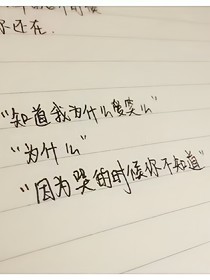 还在.
“知道我为什么爱笑么”
“为什么”
“因为哭的时候你不知道”